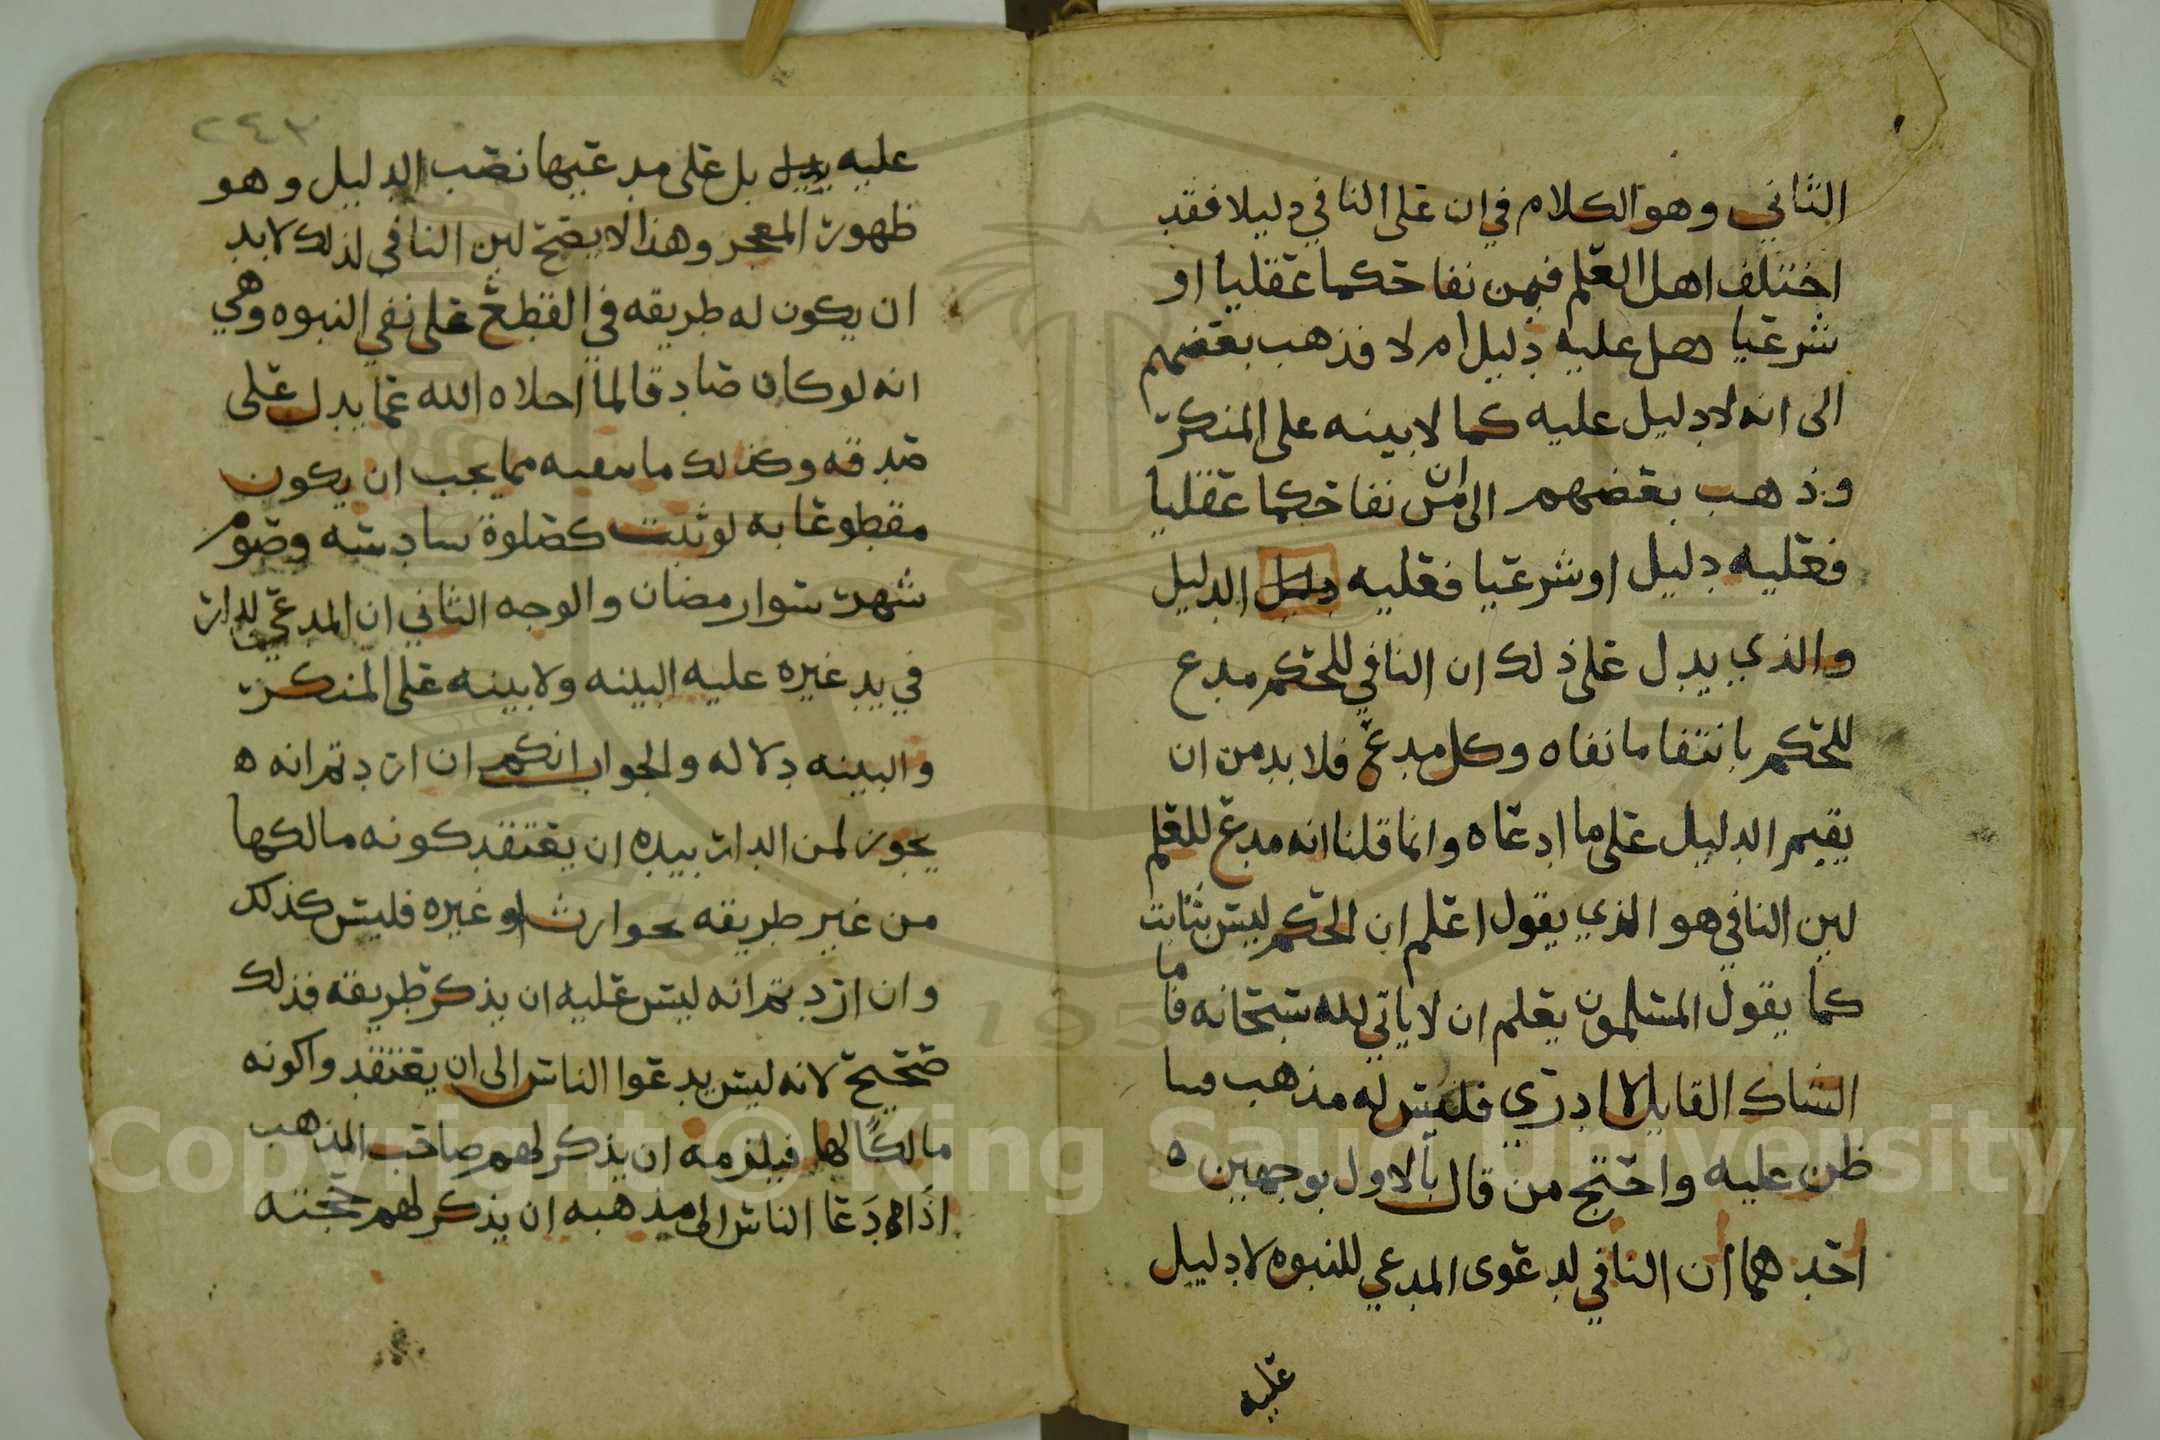 الثاني وهو الكلام في ان على النافي دليلا فقد
اختلف اهل العلم فيمن نفا حكما عقليا او
شرعيا هل عليه دليل ام لا فذهب بعضهم
الى انه لا دليل عليه كما لا بينه على المنكر
وذهب بعضهم الى ان من نفا حكما عقليا
فعليه دليل او شرعيا فعليه دليل الدليل
والذي يدل على ذلك ان النافي للحكم مدع
للحكم بانتفا ما نفاه وكل مدع فلا بد من ان
يقيم الدليل على ما ادعاه وانما قلنا انه مدع للعلم
لين النافي هو الذي يقول اعلم ان الحكم ليس بثابت
كما يقول المسلمون يعلم ان لا ثاني لله سبحانه فاما
الشاك القايل لا ادري فليس له مذهب
ظن عليه واحتج من قال بالاول بوجهين ه
احدهما ان النافي لدعوى المدعي للنبوه لا دليل
عليه
٢٤٣
عليه بل على مدعيها نصب الدليل وهو
ظهور المعجز وهذا لا يصح لين النافي لذلك لا بد
ان يكون له طريقه في القطع على نفي النبوه وهي
انه لو كان صادقا لما اخلاه الله عما يدل على
صدقه وكذلك ما مما يجب ان يكون
مقطوعا به لو ثبت كصلوة سادسه وصوم
شهر سوا رمضان والوجه الثاني ان المدعي للدار
في يد غيره عليه البينه ولا بينه على المنكر
والبينه دلاله والجواب انكم ان اردتم انه ه
يجوز لمن الدار بيده ان يعتقد كونه مالكها
من غير طريقه نحو ارث او غيره فليس كذلك
وان اردتم انه ليس عليه ان يذكر طريقه فذلك
صحيح لانه ليس يدعوا الناس الى ان يعتقدوا كونه
مالكًا لها فيلزمه ان يذكر لهم صاحب المذهب
اذا دعا الناس الى مذهبه ان يذكر لهم حجته
Copyright © King Saud University
1957